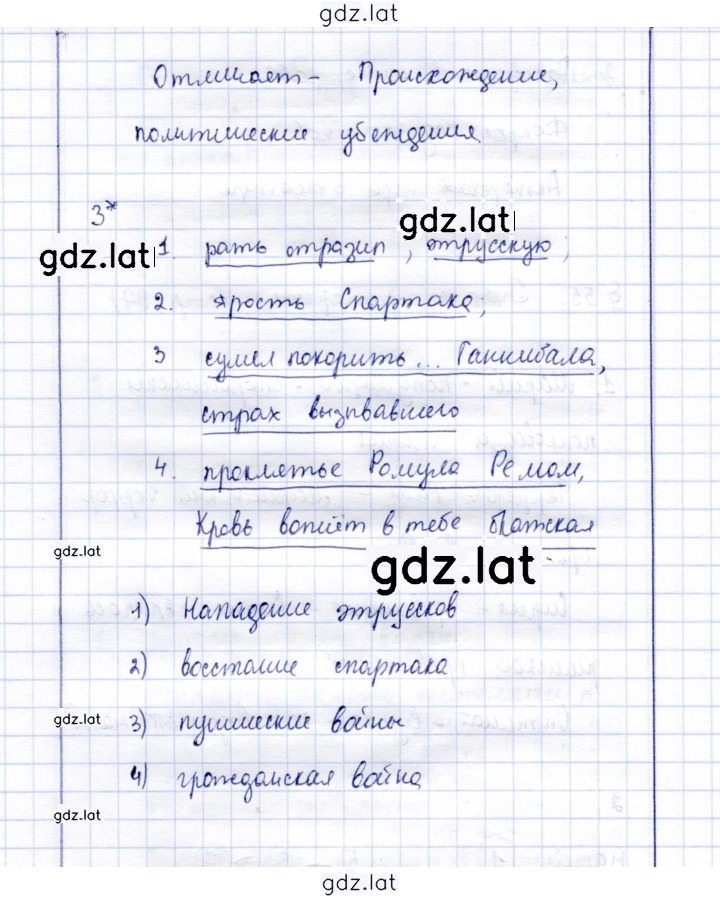 gdz.lat
Отличает - Происхождение,
политические убеждения
3*
gdz.lat
gdz.lat
1. рать отразил, этрусскую;
2. ярость Спартака,
3 сумел покорить... Ганнибала,
страх вызывавшего
4. проклятье Ромула Ремом,
Кровь вопиёт в тебе братская
gdz.lat
gdz.lat
1) Нападение этрусков
2) восстание спартака
gdz.lat
3) пунические войны
4) гражданская война
gdz.lat
gdz.lat